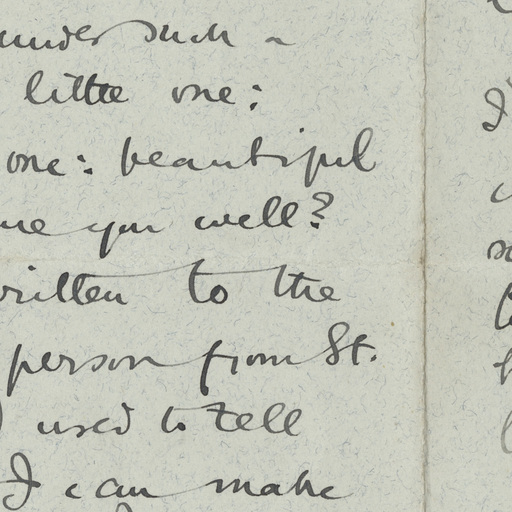 under such a
little one:
one: beautiful
you well?
written to the
person from St.
I used to tell
I can make